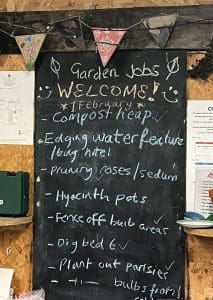 Garden Jobs
WELCOME!
1 February
- Compost heap
- Edging water feature
/bug hotel
- Pruning roses/sedum
- Hyacinth pots
- Fence off bulb areas
- Dig bed 6
- Plant out pansies
bulbs